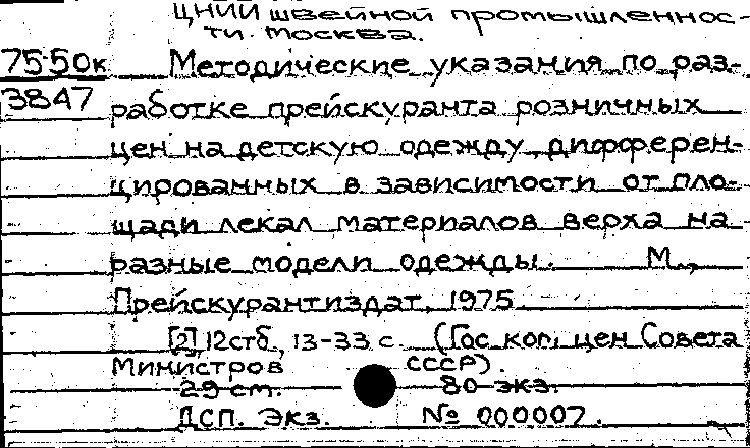 ЦНИИ швейной промышленнос-
ти. Москва.
75-50к Методические указания по раз-
3847 работке прейскуранта розничных
цен на детскую одежду, дифферен-
цированных в зависимости от пло-
щади лекал материалов верха на
разные модели одежды. М.,
Прейскурантиздат, 1975.
[2], 12стб., 13-33 с. (Гос. ком. цен Совета
Министров СССР).
29 см. 80 экз.
ДСП. Экз. № 000007.